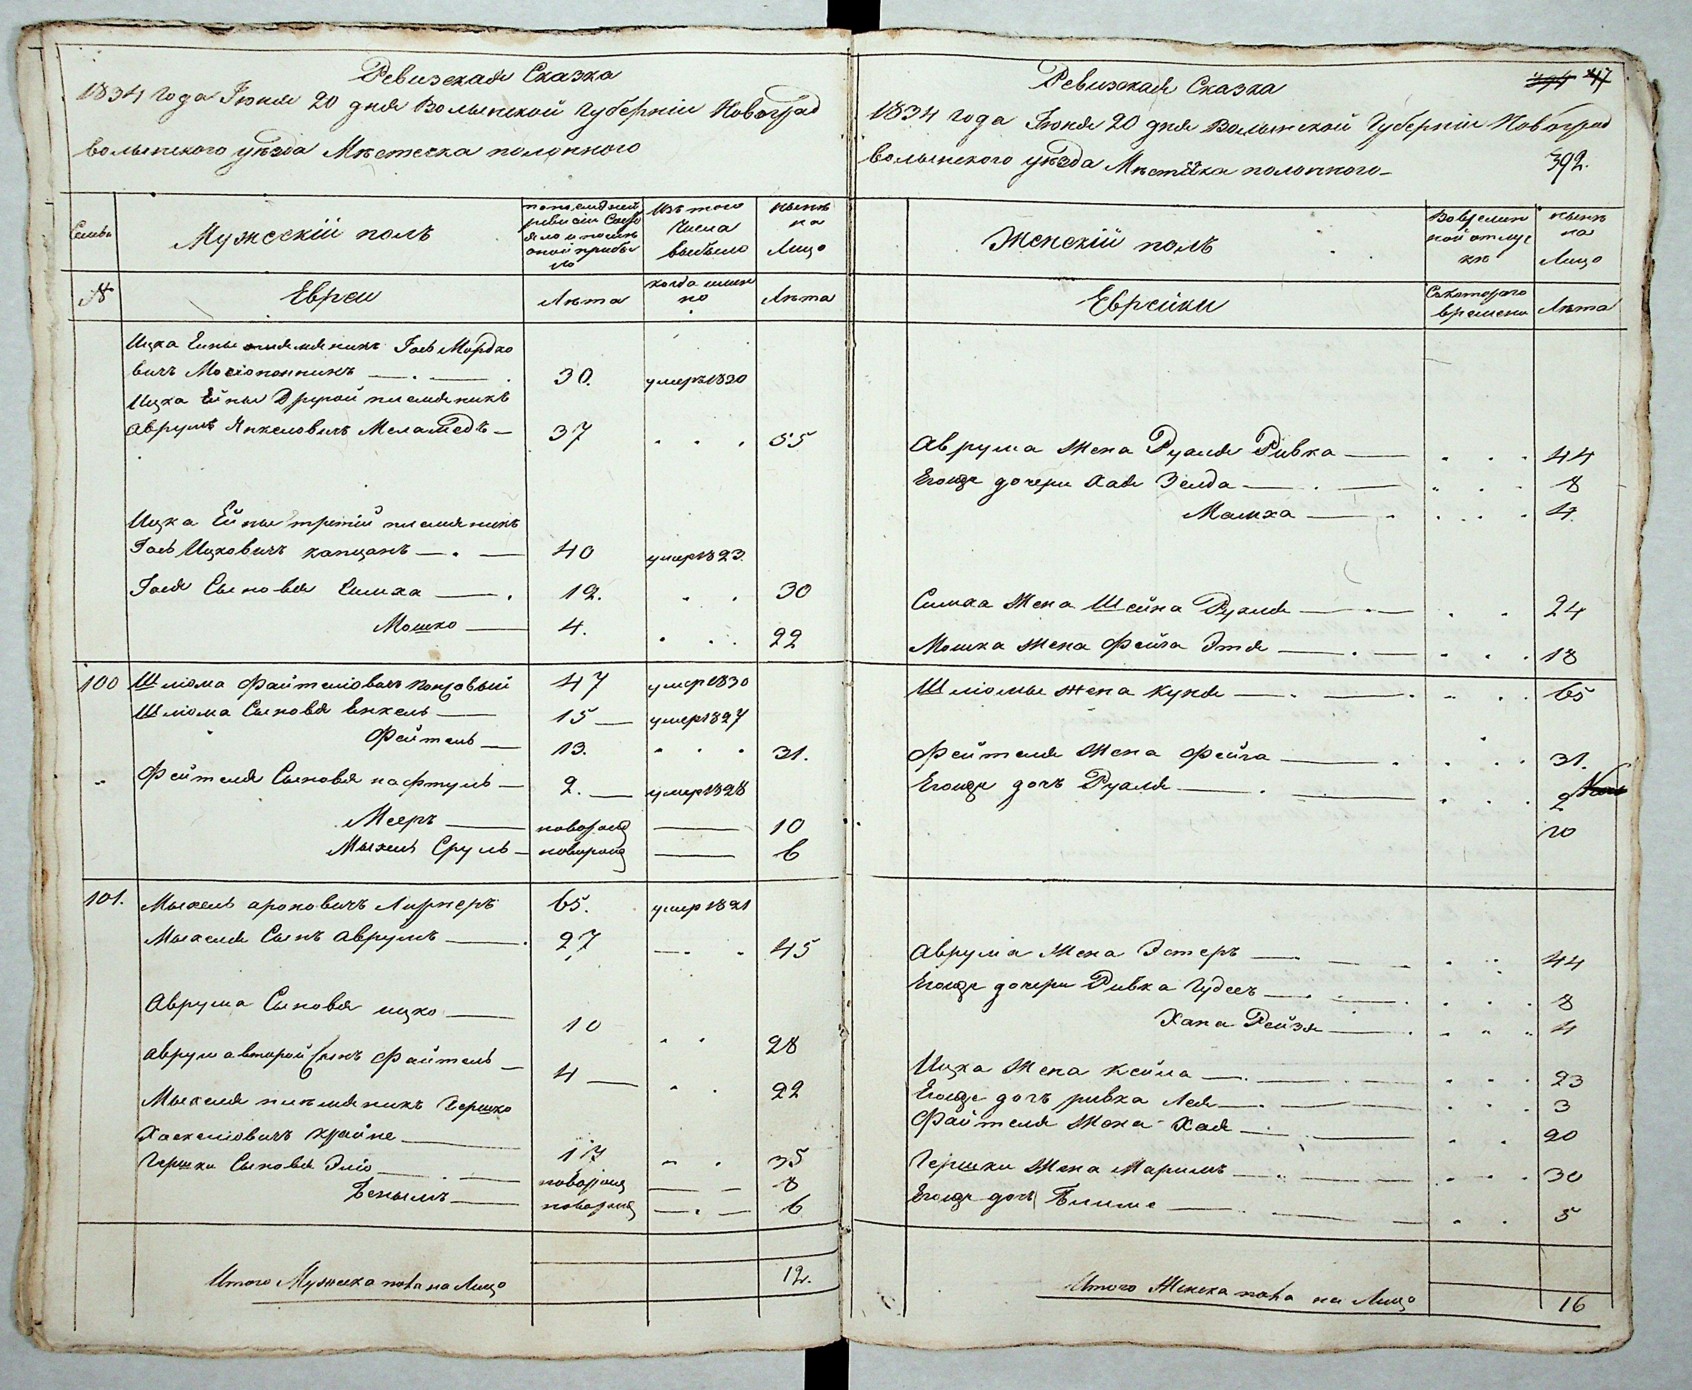 Ревизская Сказка
1834 года Іюня 20 дня Волынской Губерніи Новоград
волынского уѣзда Мѣстечка полонного
Семьи
Мужескій полъ
по последней
ревизіи Состо
яло и послѣ
оной прибы
ло
Изъ того
Числа
выбыло
нынѣ
на
Лицо
№
Евреи
Лѣта
когда имен
но
Лѣта
Ицка Ейны племяникъ Іось Мордко
вичъ 30. умеръ 1830
Ицка Ейны Другой племяникъ
Аврумъ Янкеловичъ Меламедъ 37 55
Ицка Ейны третій племяникъ
Іось Ицковичъ капцанъ 40 умер 1823.
Іося Сыновья Симха 12. 30
Мошко 4. 22
100 Шліома Файтеліовичъ 47 умер 1830
Шліома Сыновья Енкель 15 умер 1827
Фейтель 13. 31.
Фейтеля Сыновья нафтуль 2. умер 1828
Мееръ новорожд 10
Мыхель Сруль новорожд 6
101. Мыхель ароновичъ Лирнеръ 65. умер 1821
Мыхеля Сынъ аврумъ 27 45
Аврума Сыновья ицко 10 28
аврума второй Сынъ Файтель 4 22
Мыхеля племяникъ Гершко
Хаскеліовичъ крайне 17 35
Гершки Сыновья Эліо новорожд 8
Бенымъ новорожд 6
Итого Мужеска пола на Лицо 12.
Ревизская Сказка
47
1834 года Іюня 20 дня Волынской Губерніи Новоград
волынского уѣзда Мѣстечка полонного
392.
Женскій полъ
Во времен
ной отлуч
кѣ
нынѣ
на
Лицо
Еврейки
Скоторого
времени
Лѣта
Аврума Жена Рухля Ривка 44
Егоже дочери Хая Зелда 8
Малка 4.
Симха Жена Шейна Рухля 24
Мошка жена Фейга Этя 18
Шліомы жена Куня 65
Фейтеля Жена Фейга 31.
Егоже дочь Рухля 2
10
Аврума Жена Эстеръ 44
Егоже дочери Ривка Гудесъ 8
Хана Рейзя 4
Ицка Жена Кейла 23
Егоже дочь ривка Лея 3
Файтеля Жена Хая 20
Гершки Жена Маримъ 30
Егоже дочь 5
Итого Женска пола на Лицо 16